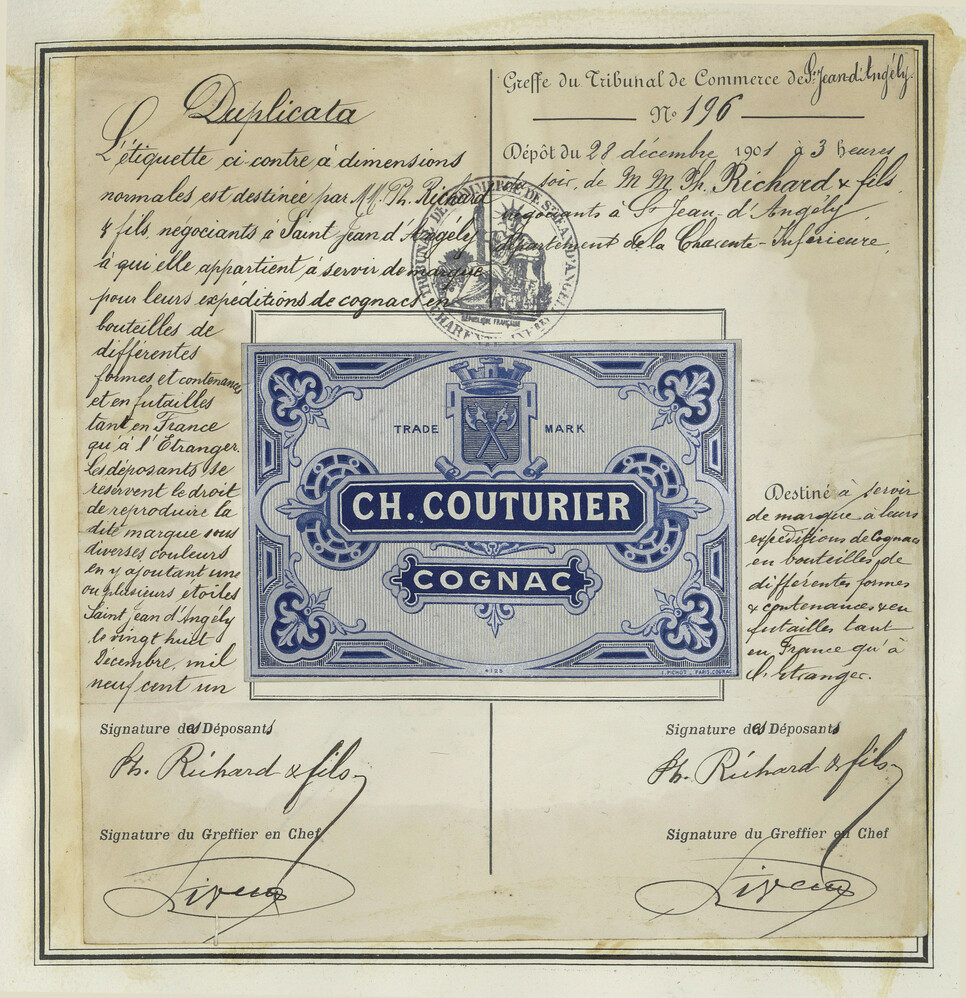 Duplicata
L'étiquette ci-contre à dimensions
normales est destinée par MM. Ph. Richard
& fils, négociants à Saint Jean d'Angély
à qui elle appartient à servir de marque
pour leurs expéditions de cognacs en
bouteilles de
différentes
formes et contenances
et en futailles
tant en France
qu'à l'Etranger.
Les déposants se
réservent le droit
de reproduire la
dite marque sous
diverses couleurs
en y ajoutant une
ou plusieurs étoiles
Saint Jean d'Angély
le vingt huit
Décembre, mil
neuf cent un
Greffe du Tribunal de Commerce de St Jean d'Angély.
No 196
Dépôt du 28 décembre 1901 à 3 heures
du soir, de MM Ph. Richard & fils
négociants à St Jean-d'Angély
département de la Charente-Inférieure
TRIBUNAL DE COMMERCE DE ST JEAN D'ANGELY
RÉPUBLIQUE FRANÇAISE
CHARENTE INFRE
TRADE MARK
CH. COUTURIER
COGNAC
*125
I. PICHOT, PARIS, COGNAC
Destiné à servir
de marque à leurs
expéditions de Cognacs
en bouteilles de
différentes formes
& contenances & en
futailles tant
en France qu'à
l'Etranger.
Signature des Déposants
Ph. Richard & fils
Signature du Greffier en Chef
Signature des Déposants
Ph. Richard & fils
Signature du Greffier en Chef